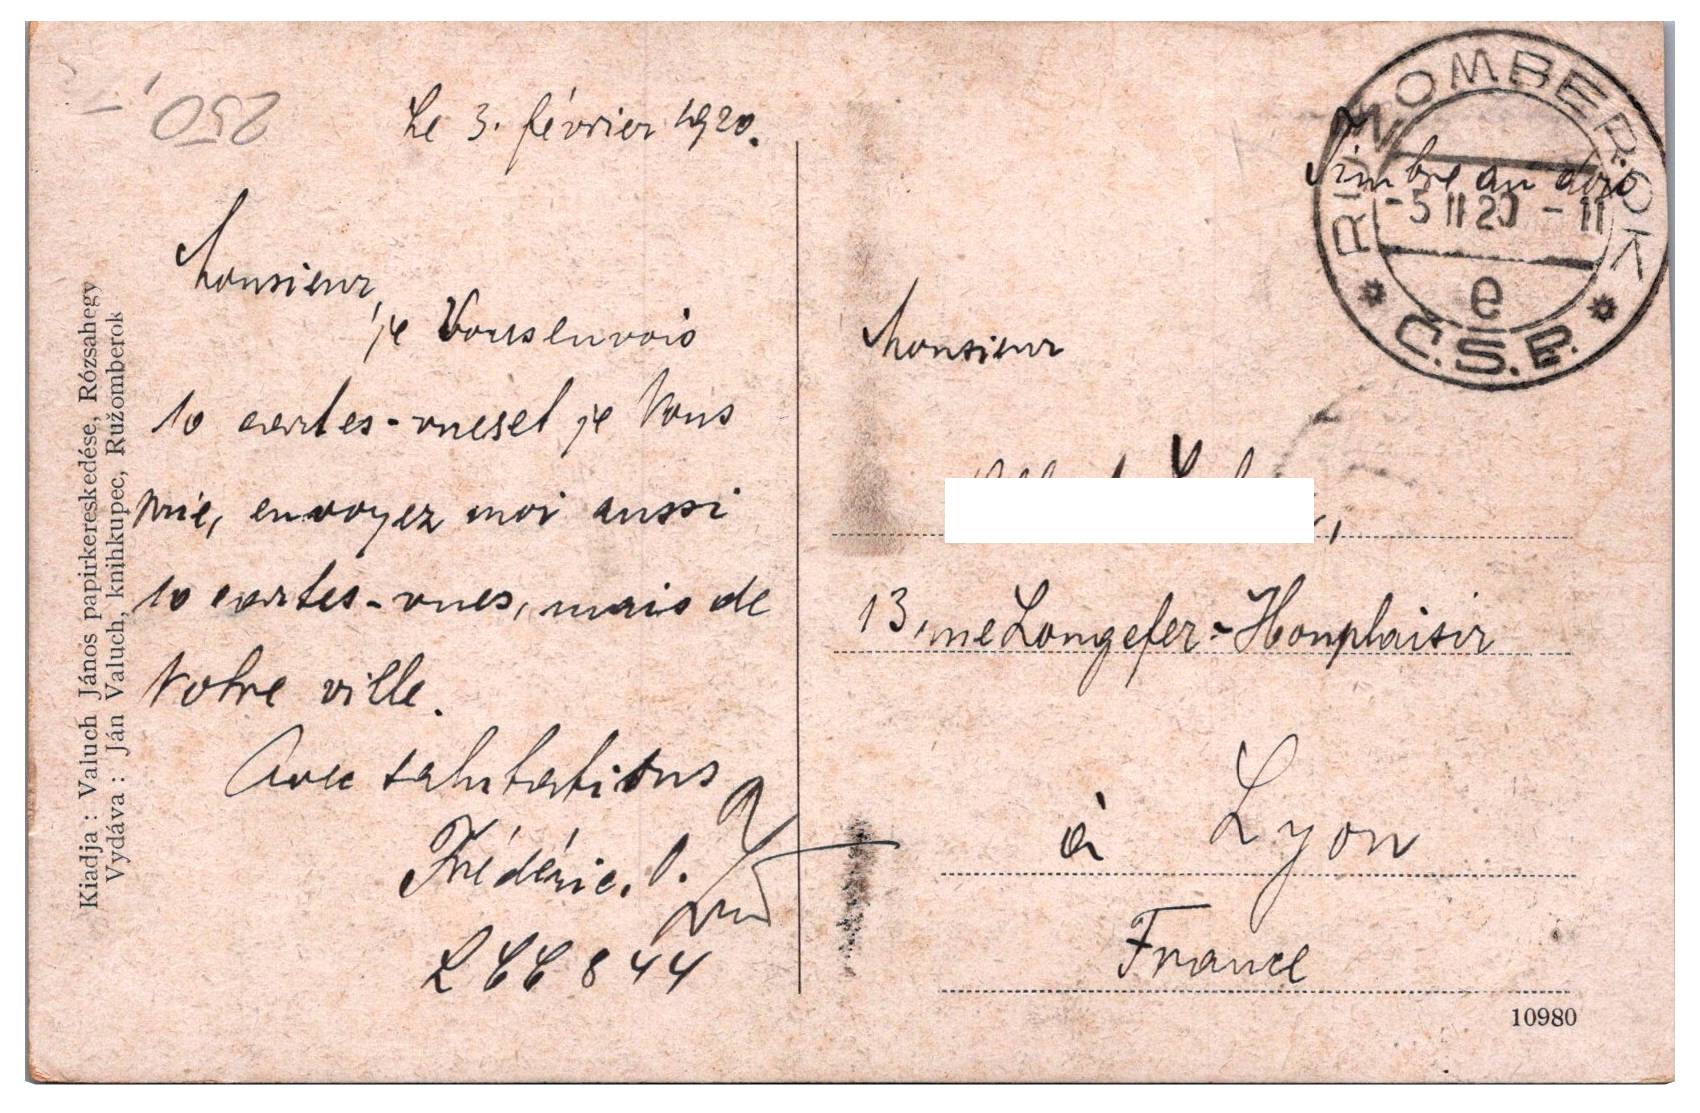 250,-
Le 3. février 1920.
Monsieur,
je Vous envois
10 cartes-vues et je Vous
prie, envoyez moi aussi
10 cartes-vues, mais de
Votre ville.
Avec salutations
Frédéric. P.
LCC 844
Kiadja : Valuch János papirkereskedése, Rózsahegy
Vydáva : Ján Valuch, kníhkupec, Ružomberok
RUŽOMBEROK
Timbre au dos
-5 II 20 - 11
e
Č.S.P.
Monsieur
13, rue Longefer-Monplaisir
à Lyon
France
10980